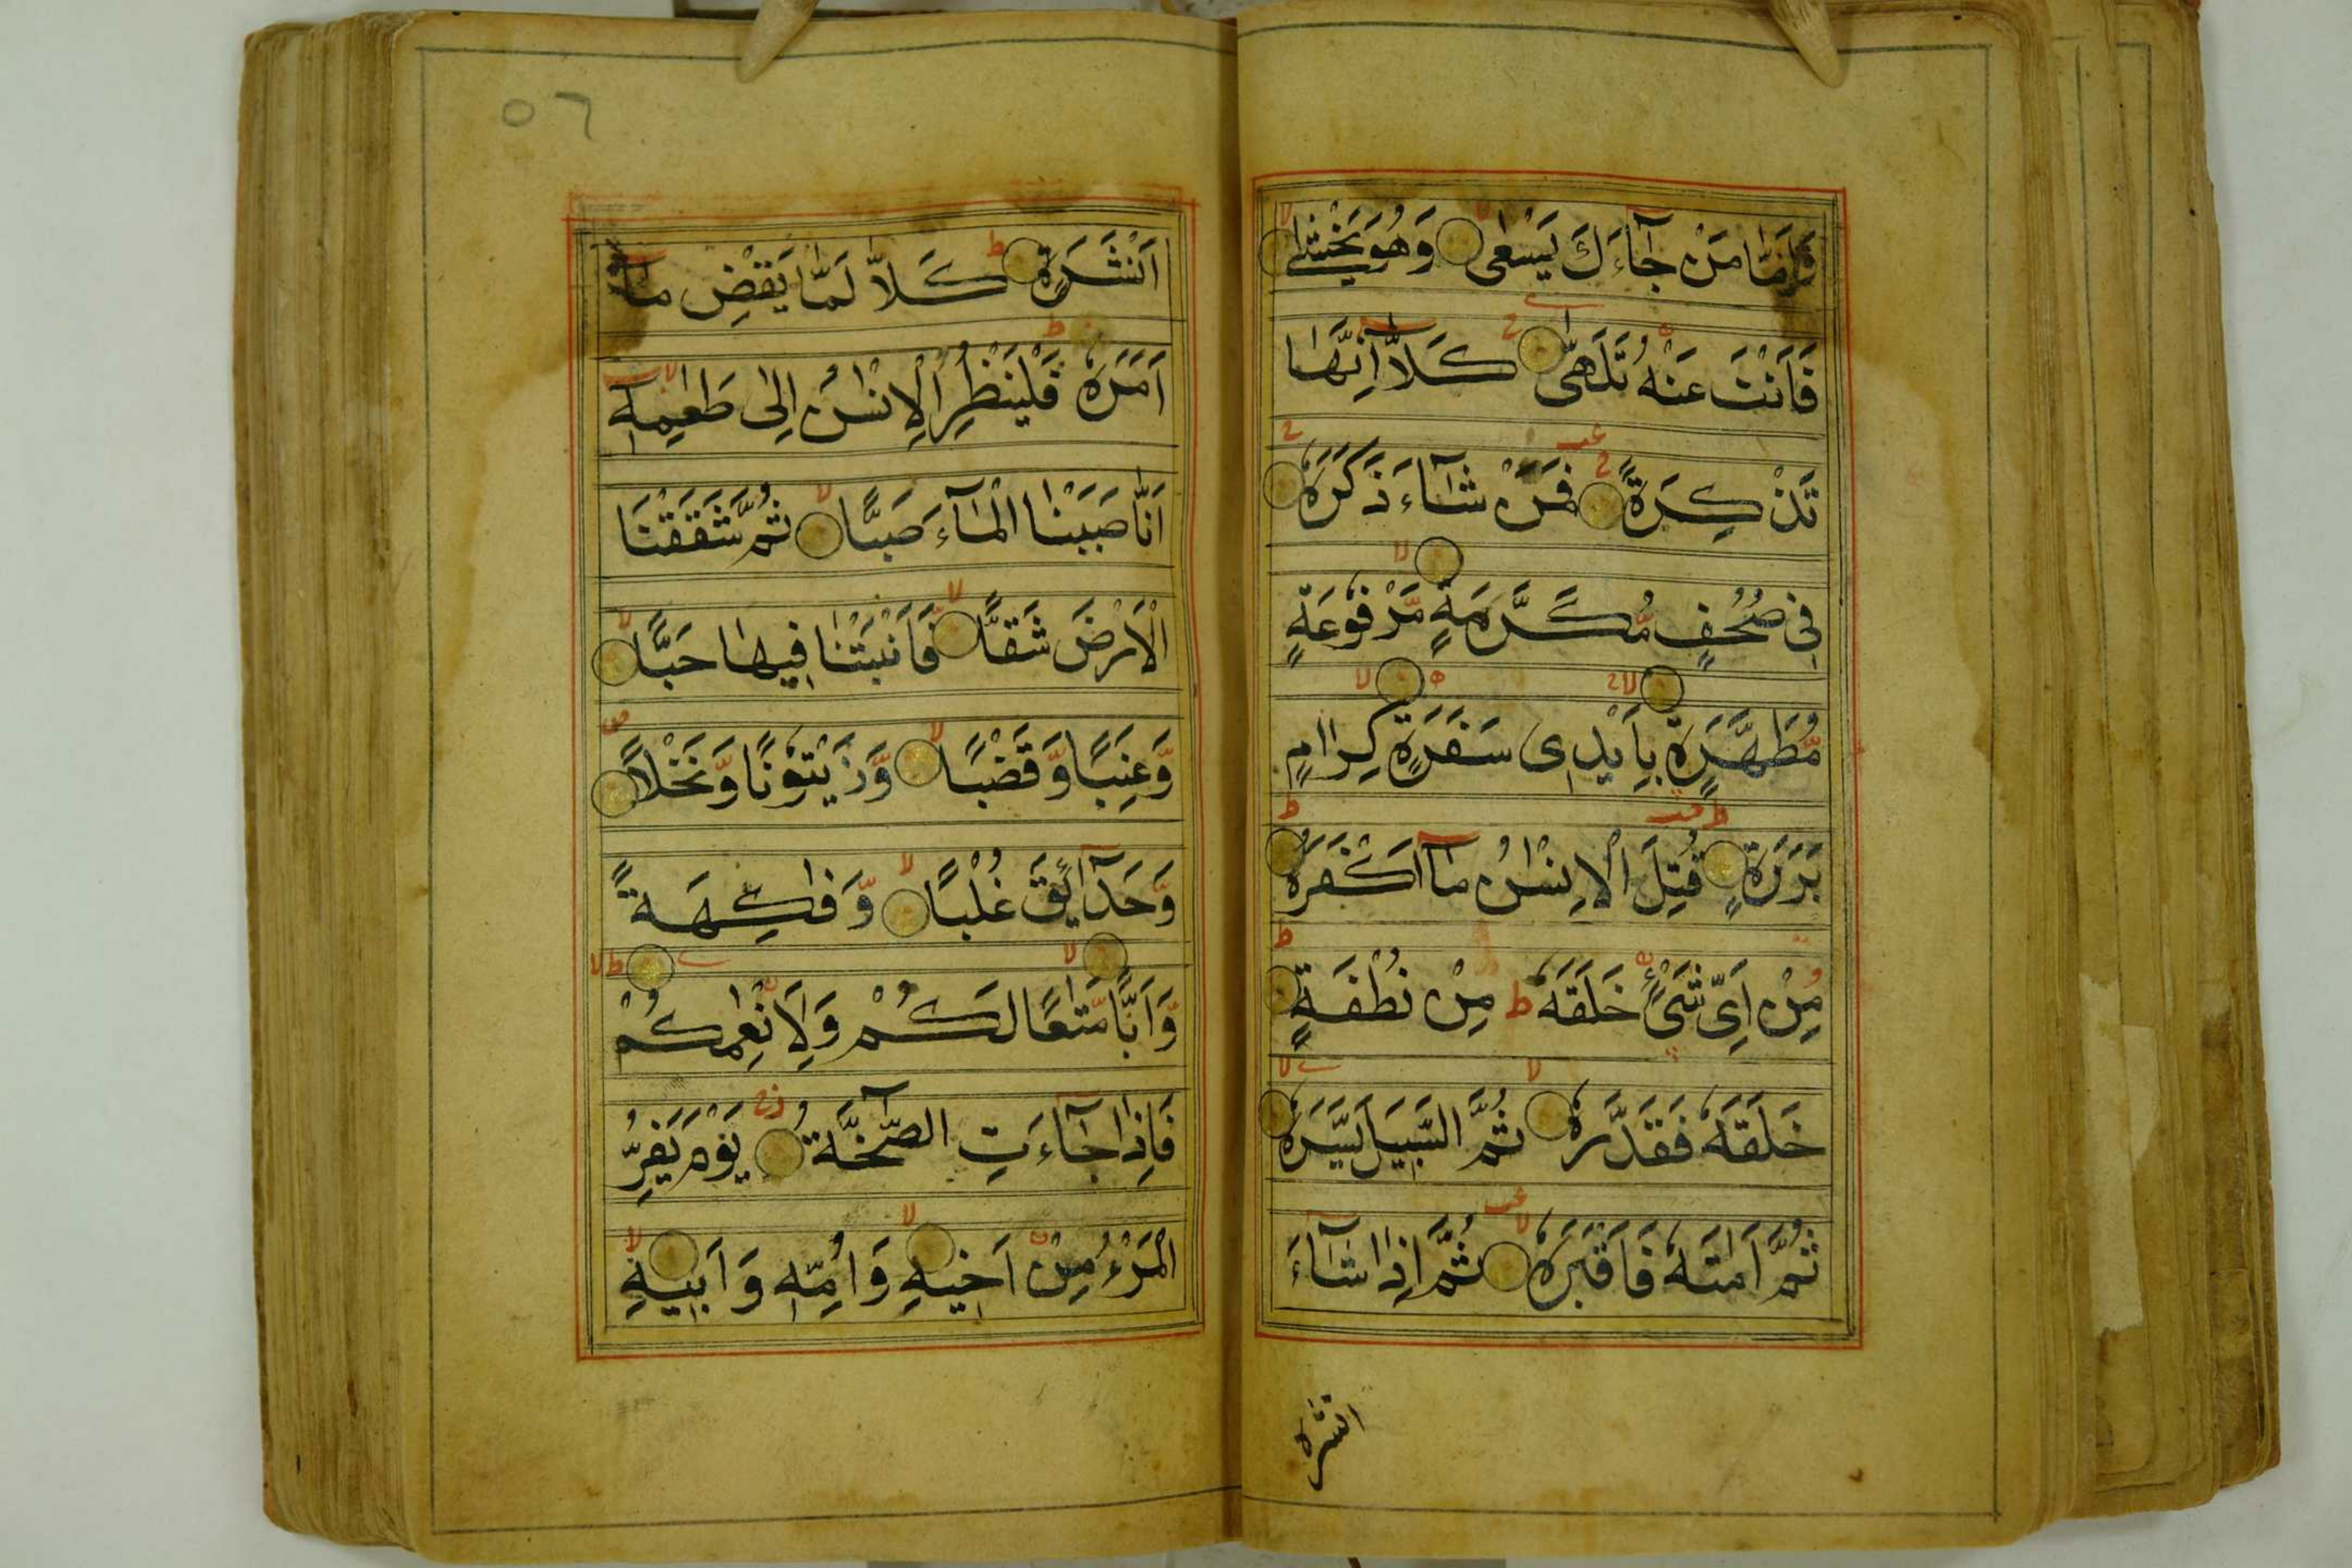 وَاَمَّا مَنْ جَآءَكَ يَسْعٰى وَهُوَ يَخْشٰى
فَاَنْتَ عَنْهُ تَلَهّٰى كَلَّآ اِنَّهَا
تَذْكِرَةٌ فَمَنْ شَآءَ ذَكَرَهٗ
فِیْ صُحُفٍ مُّكَرَّمَةٍ مَّرْفُوْعَةٍ
مُّطَهَّرَةٍ بِاَيْدِیْ سَفَرَةٍ كِرَامٍ
بَرَرَةٍ قُتِلَ الْاِنْسٰنُ مَآ اَكْفَرَهٗ
مِنْ اَیِّ شَیْءٍ خَلَقَهٗ ط مِنْ نُطْفَةٍ
خَلَقَهٗ فَقَدَّرَهٗ ثُمَّ السَّبِيْلَ يَسَّرَهٗ
ثُمَّ اَمَاتَهٗ فَاَقْبَرَهٗ ثُمَّ اِذَا شَآءَ
انشره
٥٦
اَنْشَرَهٗ كَلَّا لَمَّا يَقْضِ مَآ
اَمَرَهٗ فَلْيَنْظُرِ الْاِنْسٰنُ اِلٰى طَعَامِهٖٓ
اَنَّا صَبَبْنَا الْمَآءَ صَبًّا ثُمَّ شَقَقْنَا
الْاَرْضَ شَقًّا فَاَنْبَتْنَا فِيْهَا حَبًّا
وَّعِنَبًا وَّقَضْبًا وَّزَيْتُوْنًا وَّنَخْلًا
وَّحَدَآئِقَ غُلْبًا وَّفَاكِهَةً
وَّاَبًّا مَّتَاعًا لَكُمْ وَلِاَنْعٰمِكُمْ
فَاِذَا جَآءَتِ الصَّآخَّةُ يَوْمَ يَفِرُّ
الْمَرْءُ مِنْ اَخِيْهِ وَاُمِّهٖ وَاَبِيْهِ